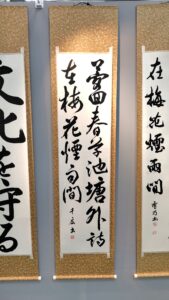 在梅花煙雨間
夢囬春草池塘外詩
在梅花煙雨間
文化を守る